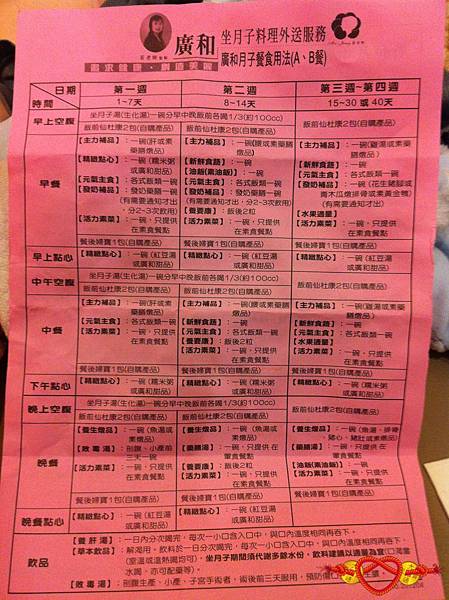 廣和
坐月子料理外送服務
廣和月子餐食用法(A、B餐)
日期
時間
第一週
1~7天
第二週
8~14天
第三週~第四週
15~30 或 40天
早上空腹
坐月子湯(生化湯)一碗分早中晚飯前各喝1/3(約100cc)
飯前仙杜康2包(自購產品)
飯前仙杜康2包(自購產品)
飯前仙杜康2包(自購產品)
早餐
【主力補品】：一碗(肝或素
藥膳燉品)
【精緻點心】：一碗(糯米粥
或廣和甜品)
【元氣主食】：各式飯類一碗
【發奶補品】：發奶藥膳一碗
(有需要請通知才出
，分2~3次飲用)
【活力素菜】：一碗，只提供
在素食餐點
【主力補品】：一碗(腰或素藥
膳燉品)
【新鮮食蔬】：一碗
【油飯(素油飯)】：一碗
【元氣主食】：各式飯類一碗
【發奶補品】：發奶藥膳一碗
(有需要請通知才出
，分2~3次飲用)
【養要康】：飯後2粒
【活力素菜】：一碗，只提供
在素食餐點
【主力補品】：一碗(雞湯或素
藥膳燉品)
【新鮮食蔬】：一碗
【元氣主食】：各式飯類一碗
【發奶補品】：一碗(花生豬腳或
青木瓜燉排骨或素黃金鴨)
(有需要請通知才出)
【水果適量】
【活力素菜】：一碗，只提供
在素食餐點
餐後婦寶1包(自購產品)
餐後婦寶1包(自購產品)
餐後婦寶1包(自購產品)
早上點心
【精緻點心】：一碗(紅豆湯
或廣和甜品)
【精緻點心】：一碗(紅豆湯
或廣和甜品)
【精緻點心】：一碗(紅豆湯
或廣和甜品)
中午空腹
坐月子湯(生化湯)一碗分早中晚飯前各喝1/3(約100cc)
飯前仙杜康2包(自購產品)
飯前仙杜康2包(自購產品)
飯前仙杜康2包(自購產品)
中餐
【主力補品】：一碗(肝或素
藥膳燉品)
【元氣主食】：各式飯類一碗
【活力素菜】：一碗，只提供
在素食餐點
【主力補品】：一碗(腰或素藥
膳燉品)
【新鮮食蔬】：一碗
【元氣主食】：各式飯類一碗
【養要康】：飯後2粒
【活力素菜】：一碗，只提供
在素食餐點
【主力補品】：一碗(雞湯或素
藥膳燉品)
【新鮮食蔬】：一碗
【元氣主食】：各式飯類一碗
【水果適量】
【活力素菜】：一碗，只提供
在素食餐點
餐後婦寶1包(自購產品)
餐後婦寶1包(自購產品)
餐後婦寶1包(自購產品)
下午點心
【精緻點心】：一碗(糯米粥
或廣和甜品)
【精緻點心】：一碗(糯米粥
或廣和甜品)
【精緻點心】：一碗(糯米粥
或廣和甜品)
晚上空腹
坐月子湯(生化湯)一碗分早中晚飯前各喝1/3(約100cc)
飯前仙杜康2包(自購產品)
飯前仙杜康2包(自購產品)
飯前仙杜康2包(自購產品)
晚餐
【養生燉品】：一碗(魚湯或
素燉品)
【敗毒湯】：剖腹、小產前
三天一碗
【活力素菜】：一碗，只提供
在素食餐點
【養生燉品】：一碗(魚湯或
素燉品)
【藥膳湯】：一碗，只提供在
葷食餐點
【養要康】：飯後2粒
【活力素菜】：一碗，只提供
在素食餐點
【養生燉品】：一碗(魚湯、排骨
、豬心、豬肚或素燉品)
【藥膳湯】：一碗，只提供在
葷食餐點
【油飯(素油飯)】：一碗
【活力素菜】：一碗，只提供
在素食餐點
餐後婦寶1包(自購產品)
餐後婦寶1包(自購產品)
餐後婦寶1包(自購產品)
晚餐點心
【精緻點心】：一碗(紅豆湯
或廣和甜品)
【精緻點心】：一碗(紅豆湯
或廣和甜品)
飲品
【養肝湯】：一日內分次喝完，每次一小口含入口中，與口內溫度相同再吞下。
【草本飲品】：解渴用，飲料於一日分次喝完，每次一小口含入口中，與口內溫度相同再吞下。
(室溫或溫熱喝均可)，坐月子期間須代謝多餘水份，飲料建議以適量為宜(口渴當
水喝，亦可配藥等)。
【敗毒湯】：剖腹生產、小產、子宮手術者，術後前三天服用，預防傷口